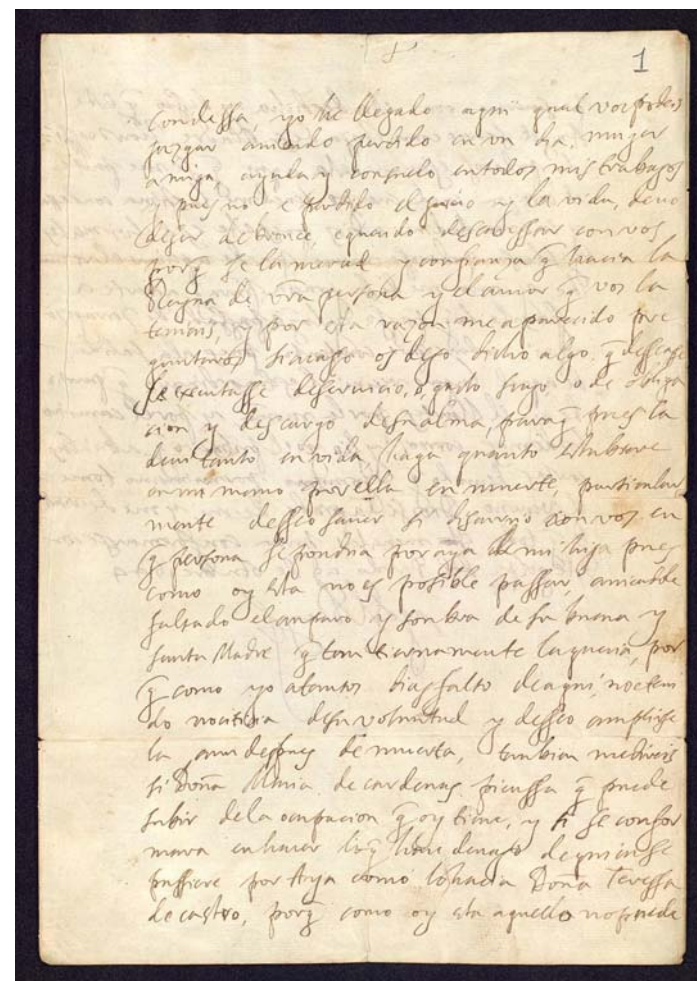 1
Condessa, yo he llegado aqui qual vos podeis
juzgar aviendo perdido en un dia, muger
amiga, ayuda y consuelo en todos mis trabajos
y pues no e perdido el juicio y la vida, devo
de ser de bronce, e querido descansar con vos
porq̃ se la merced y confianza q̃ hacia la
Reyna de vr̃a persona y el amor q̃ vos la
teniais, y por esta razon me a parecido pre
guntaros si acasso os dejo dicho algo q̃ desseasse
se executasse de servicio, o, gusto suyo o de obliga
cion y descargo de su alma, para q̃ pues la
devi tanto en vida, haga quanto estubiere
en mi mano por ella en muerte, particular
mente desseo saver si discurrio con vos en
q̃ persona se pondria por aya de mi hija pues
como oy esta no es posible passar, aviendole
faltado el amparo y sombra de su buena y
santa Madre q̃ tan tiernamente la queria, por
q̃ como yo a tantos dias falto de aqui, no e teni
do noticia de su voluntad y desseo cumplirse
la aun despues de muerta, tambien me direis
si Doña Maria de cardenas piensa q̃ puede
subir de la ocupacion q̃ oy tiene, y si se confor
mara en hacer lo q̃ de quien se
pussiere por Aya como lo hacia Doña Teressa
de castro, porq̃ como oy esta aquello no puede